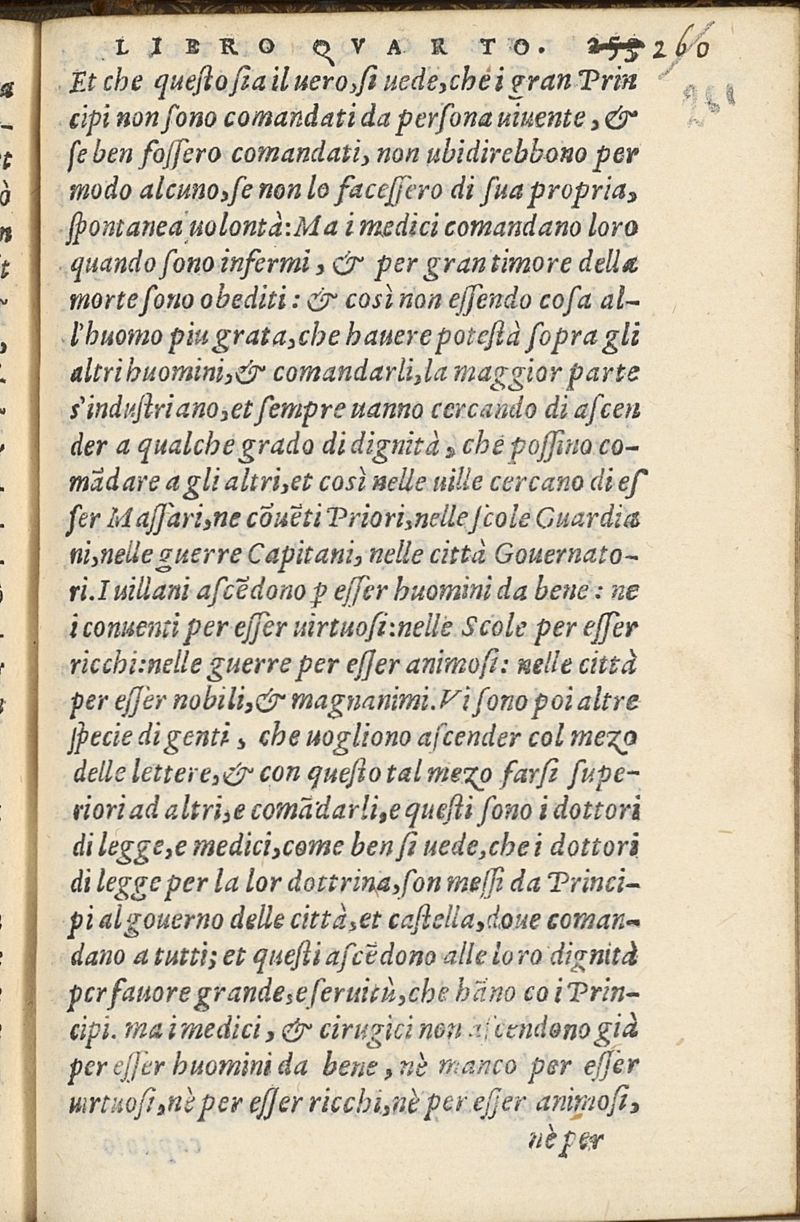 LIBRO QVARTO. 253 260
281
Et che queſto ſia il uero, ſi uede, che i gran Prin
cipi non ſono comandati da perſona uiuente, &
ſe ben foſſero comandati, non ubidirebbono per
modo alcuno, ſe non lo faceſſero di ſua propria,
ſpontanea uolontà: Ma i medici comandano loro
quando ſono infermi, & per gran timore della
morte ſono obediti: & così non eſſendo coſa al-
l'huomo piu grata, che hauere poteſtà ſopra gli
altri huomini, & comandarli, la maggior parte
s'induſtriano, et ſempre uanno cercando di aſcen
der a qualche grado di dignità, che poſſino co-
mādare a gli altri, et così nelle uille cercano di eſ
ſer Maſſari, ne cōuēti Priori, nelle ſcole Guardia
ni, nelle guerre Capitani, nelle città Gouernato-
ri. I uillani aſcēdono ꝑ eſſer huomini da bene: ne
i conuenti per eſſer uirtuoſi: nelle Scole per eſſer
ricchi: nelle guerre per eſſer animoſi: nelle città
per eſſer nobili, & magnanimi. Vi ſono poi altre
ſpecie di genti, che uogliono aſcender col mezo
delle lettere, & con queſto tal mezo farſi ſupe-
riori ad altri, e comādarli, e queſti ſono i dottori
di legge, e medici, come ben ſi uede, che i dottori
di legge per la lor dottrina, ſon meſſi da Princi-
pi al gouerno delle città, et caſtella, doue coman-
dano a tutti; et queſti aſcēdono alle loro dignità
per fauore grande, e ſeruitù, che hāno co i Prin-
cipi. ma i medici, & cirugici non aſcendono già
per eſſer huomini da bene, nè manco per eſſer
uirtuoſi, nè per eſſer ricchi, nè per eſſer animoſi,
nè per